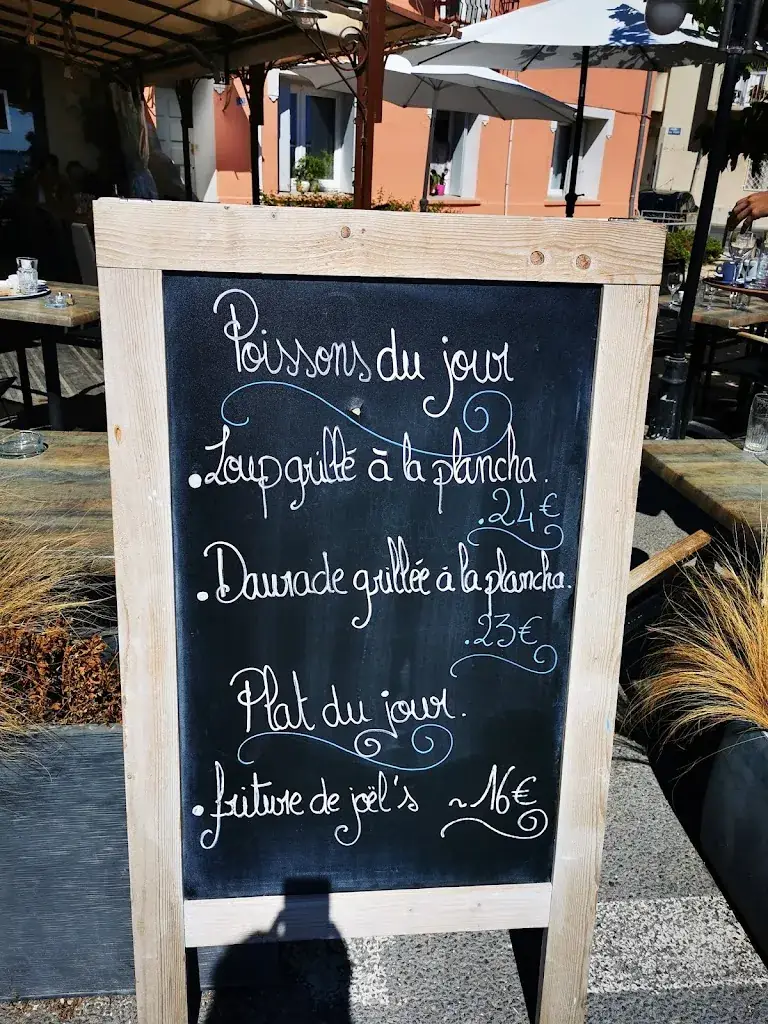 Poissons du jour
. Loup grillé à la plancha.
.24€
. Daurade grillée à la plancha.
.23€
Plat du jour.
. friture de joël's ~ 16€